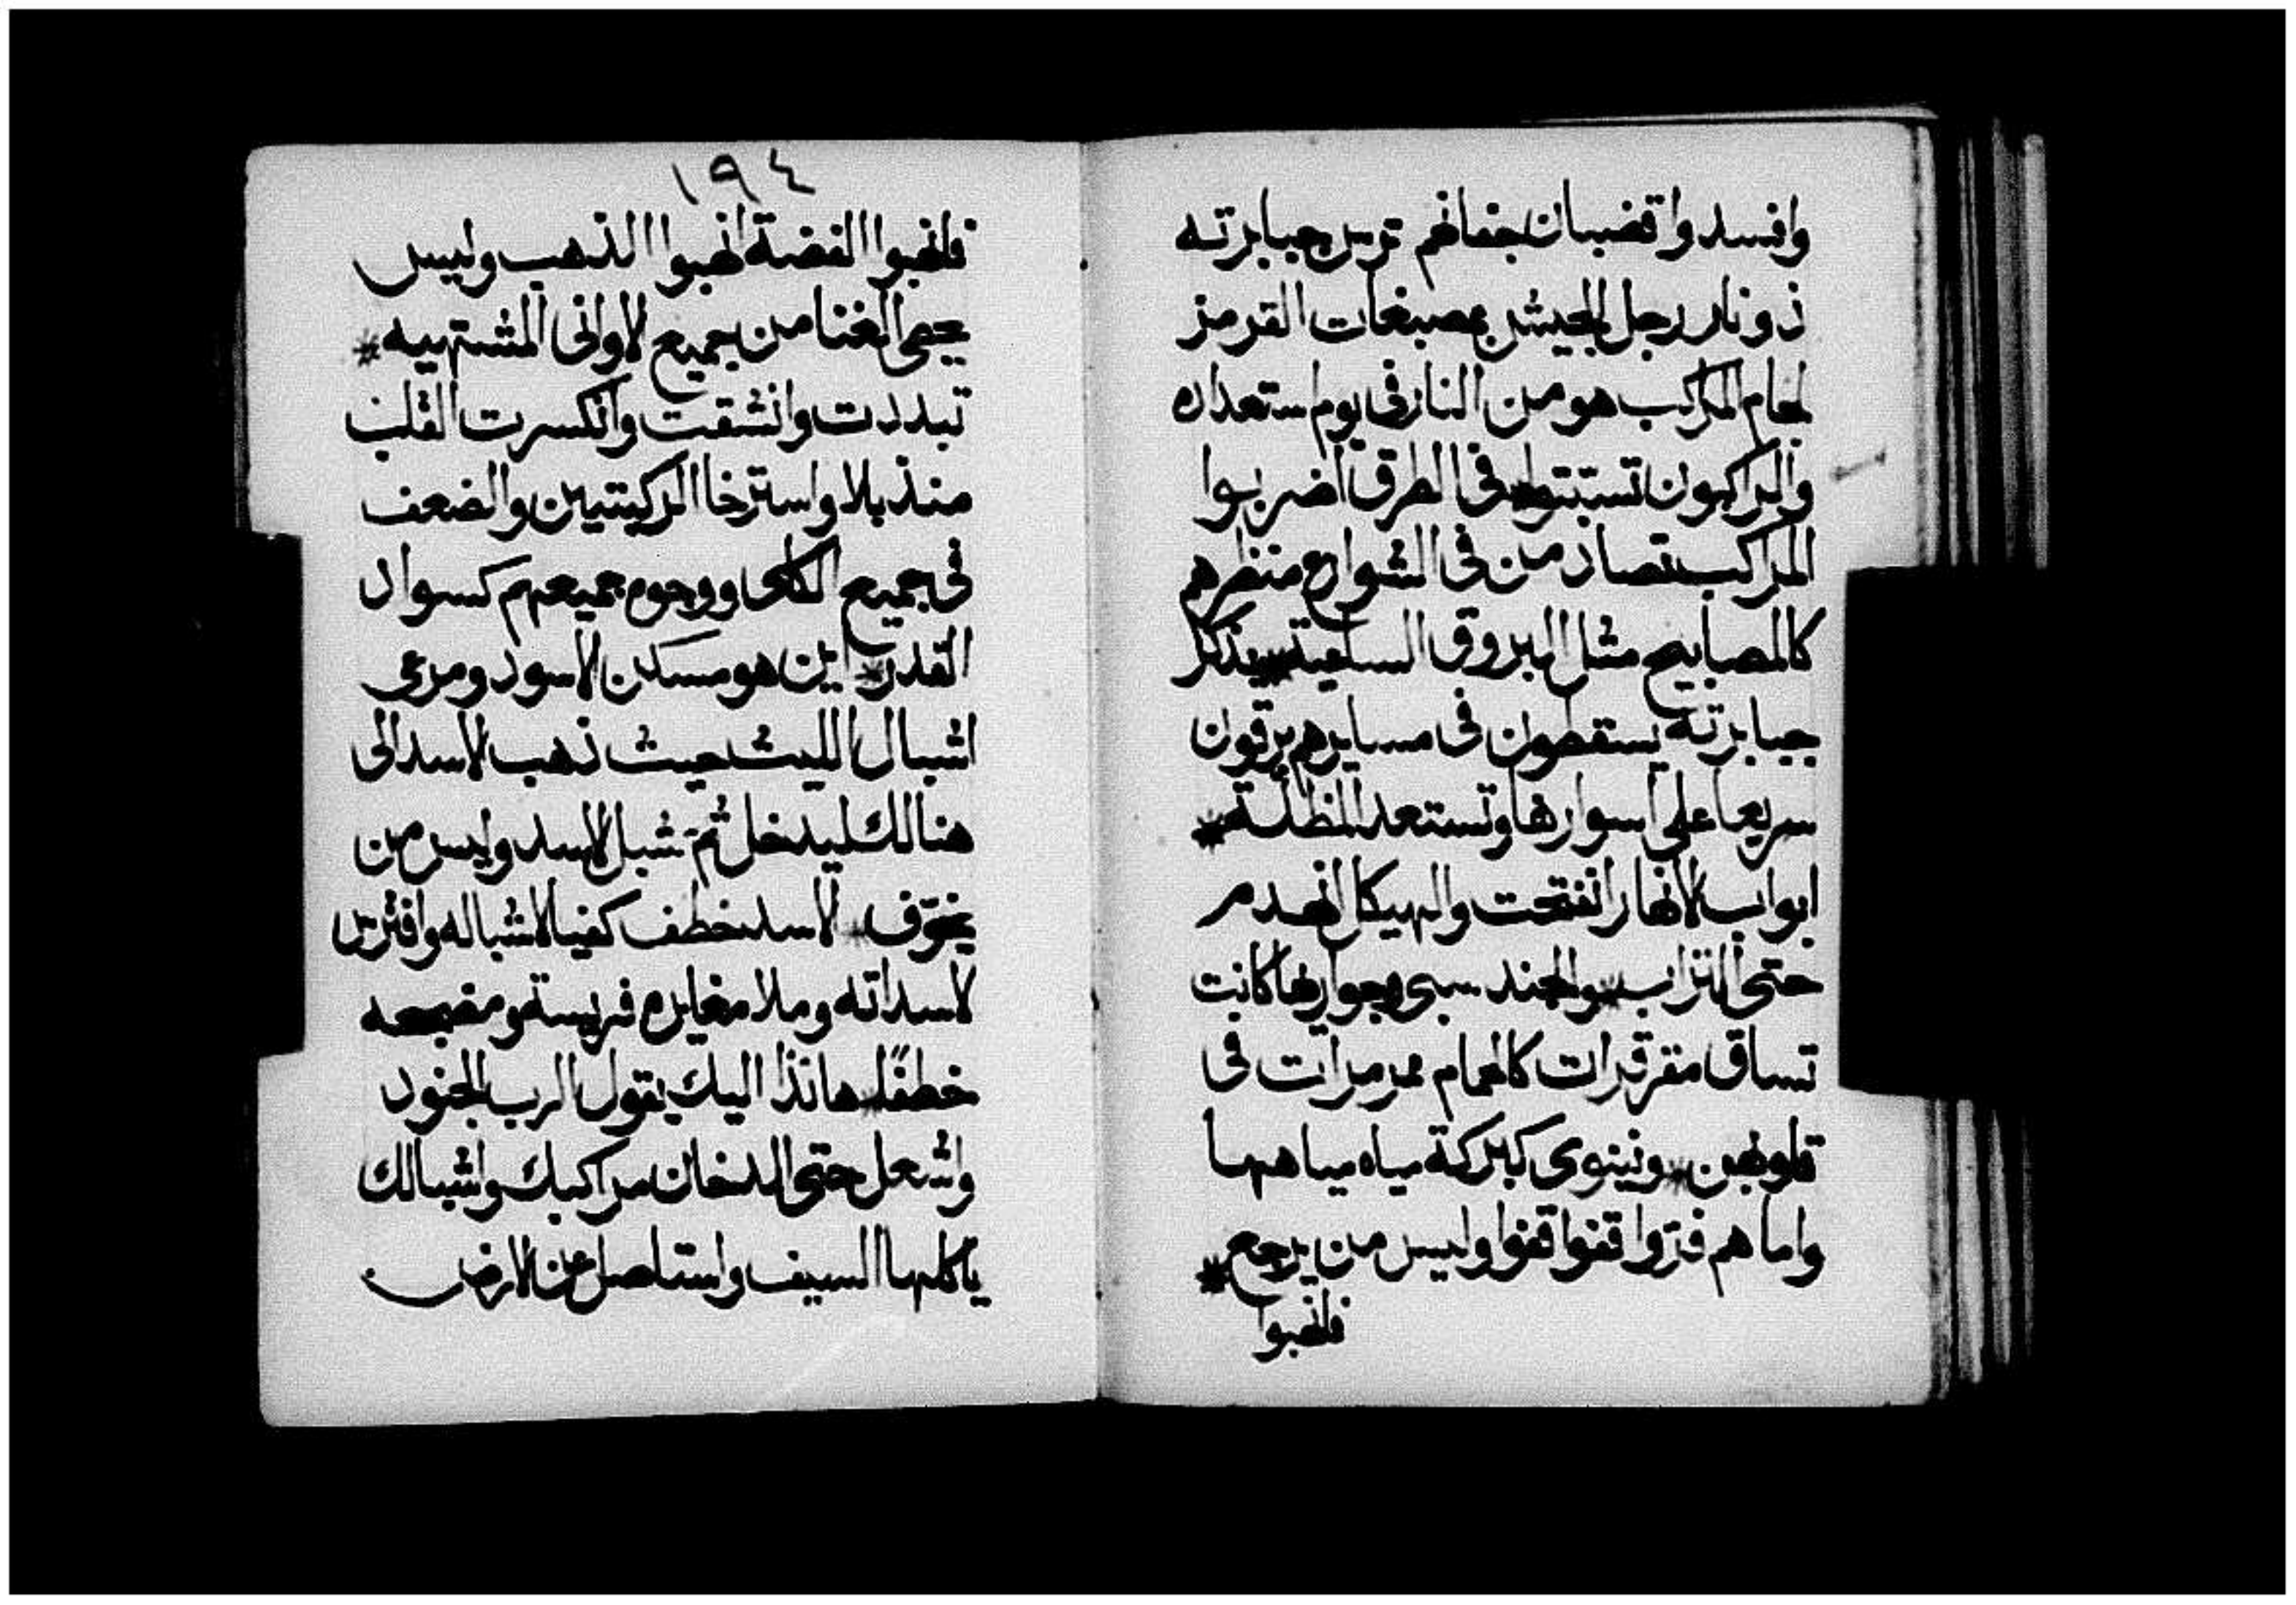 وافسدوا قضبان جفانهم ترس جبابرته
ذو نار رجل الجيش بمصبغات القرمز
لجام المراكب هو من النار في يوم استعداده
والراكبون في الطرق اضربوا
المراكب تصادمن في الشوارع منظرهم
كالمصابيح مثل البروق الساعية * يذكر
جبابرته يسقطون في مسايرهم يرقون
سريعا على اسوارها وتستعد المظلة *
ابواب الانهار انفتحت والهيكل انهدم
حتى التراب * والجند سبي وجوارها كانت
تساق مقرقرات كالحمام ممرمرات في
قلوبهن * ونينوى كبركة مياه مياهها
واما هم فتروا قفوا قفوا وليس من يرجع *
فانهبوا
١٩٤
فانهبوا الفضة انهبوا الذهب وليس
يحصى الغنا من جميع الاواني المشتهيه *
تبددت وانشقت وانكسرت القلب
منذبلا واسترخا الركبتين والضعف
في جميع الكلى ووجوه جميعهم كسواد
القدر * اين هو مسكن الاسود ومرعى
اشبال الليث حيث ذهب الاسد الى
هنالك ليدخل ثم شبل الاسد وليس من
يخوّف * الاسد خطف كفيا لاشباله وافترس
لاسداته وملا مغايره فريسة ومضجعه
خطفًا * هانذا اليك يقول الرب الجنود
واشعل حتى الدخان مراكبك واشبالك
ياكلها السيف واستاصل عن الارض